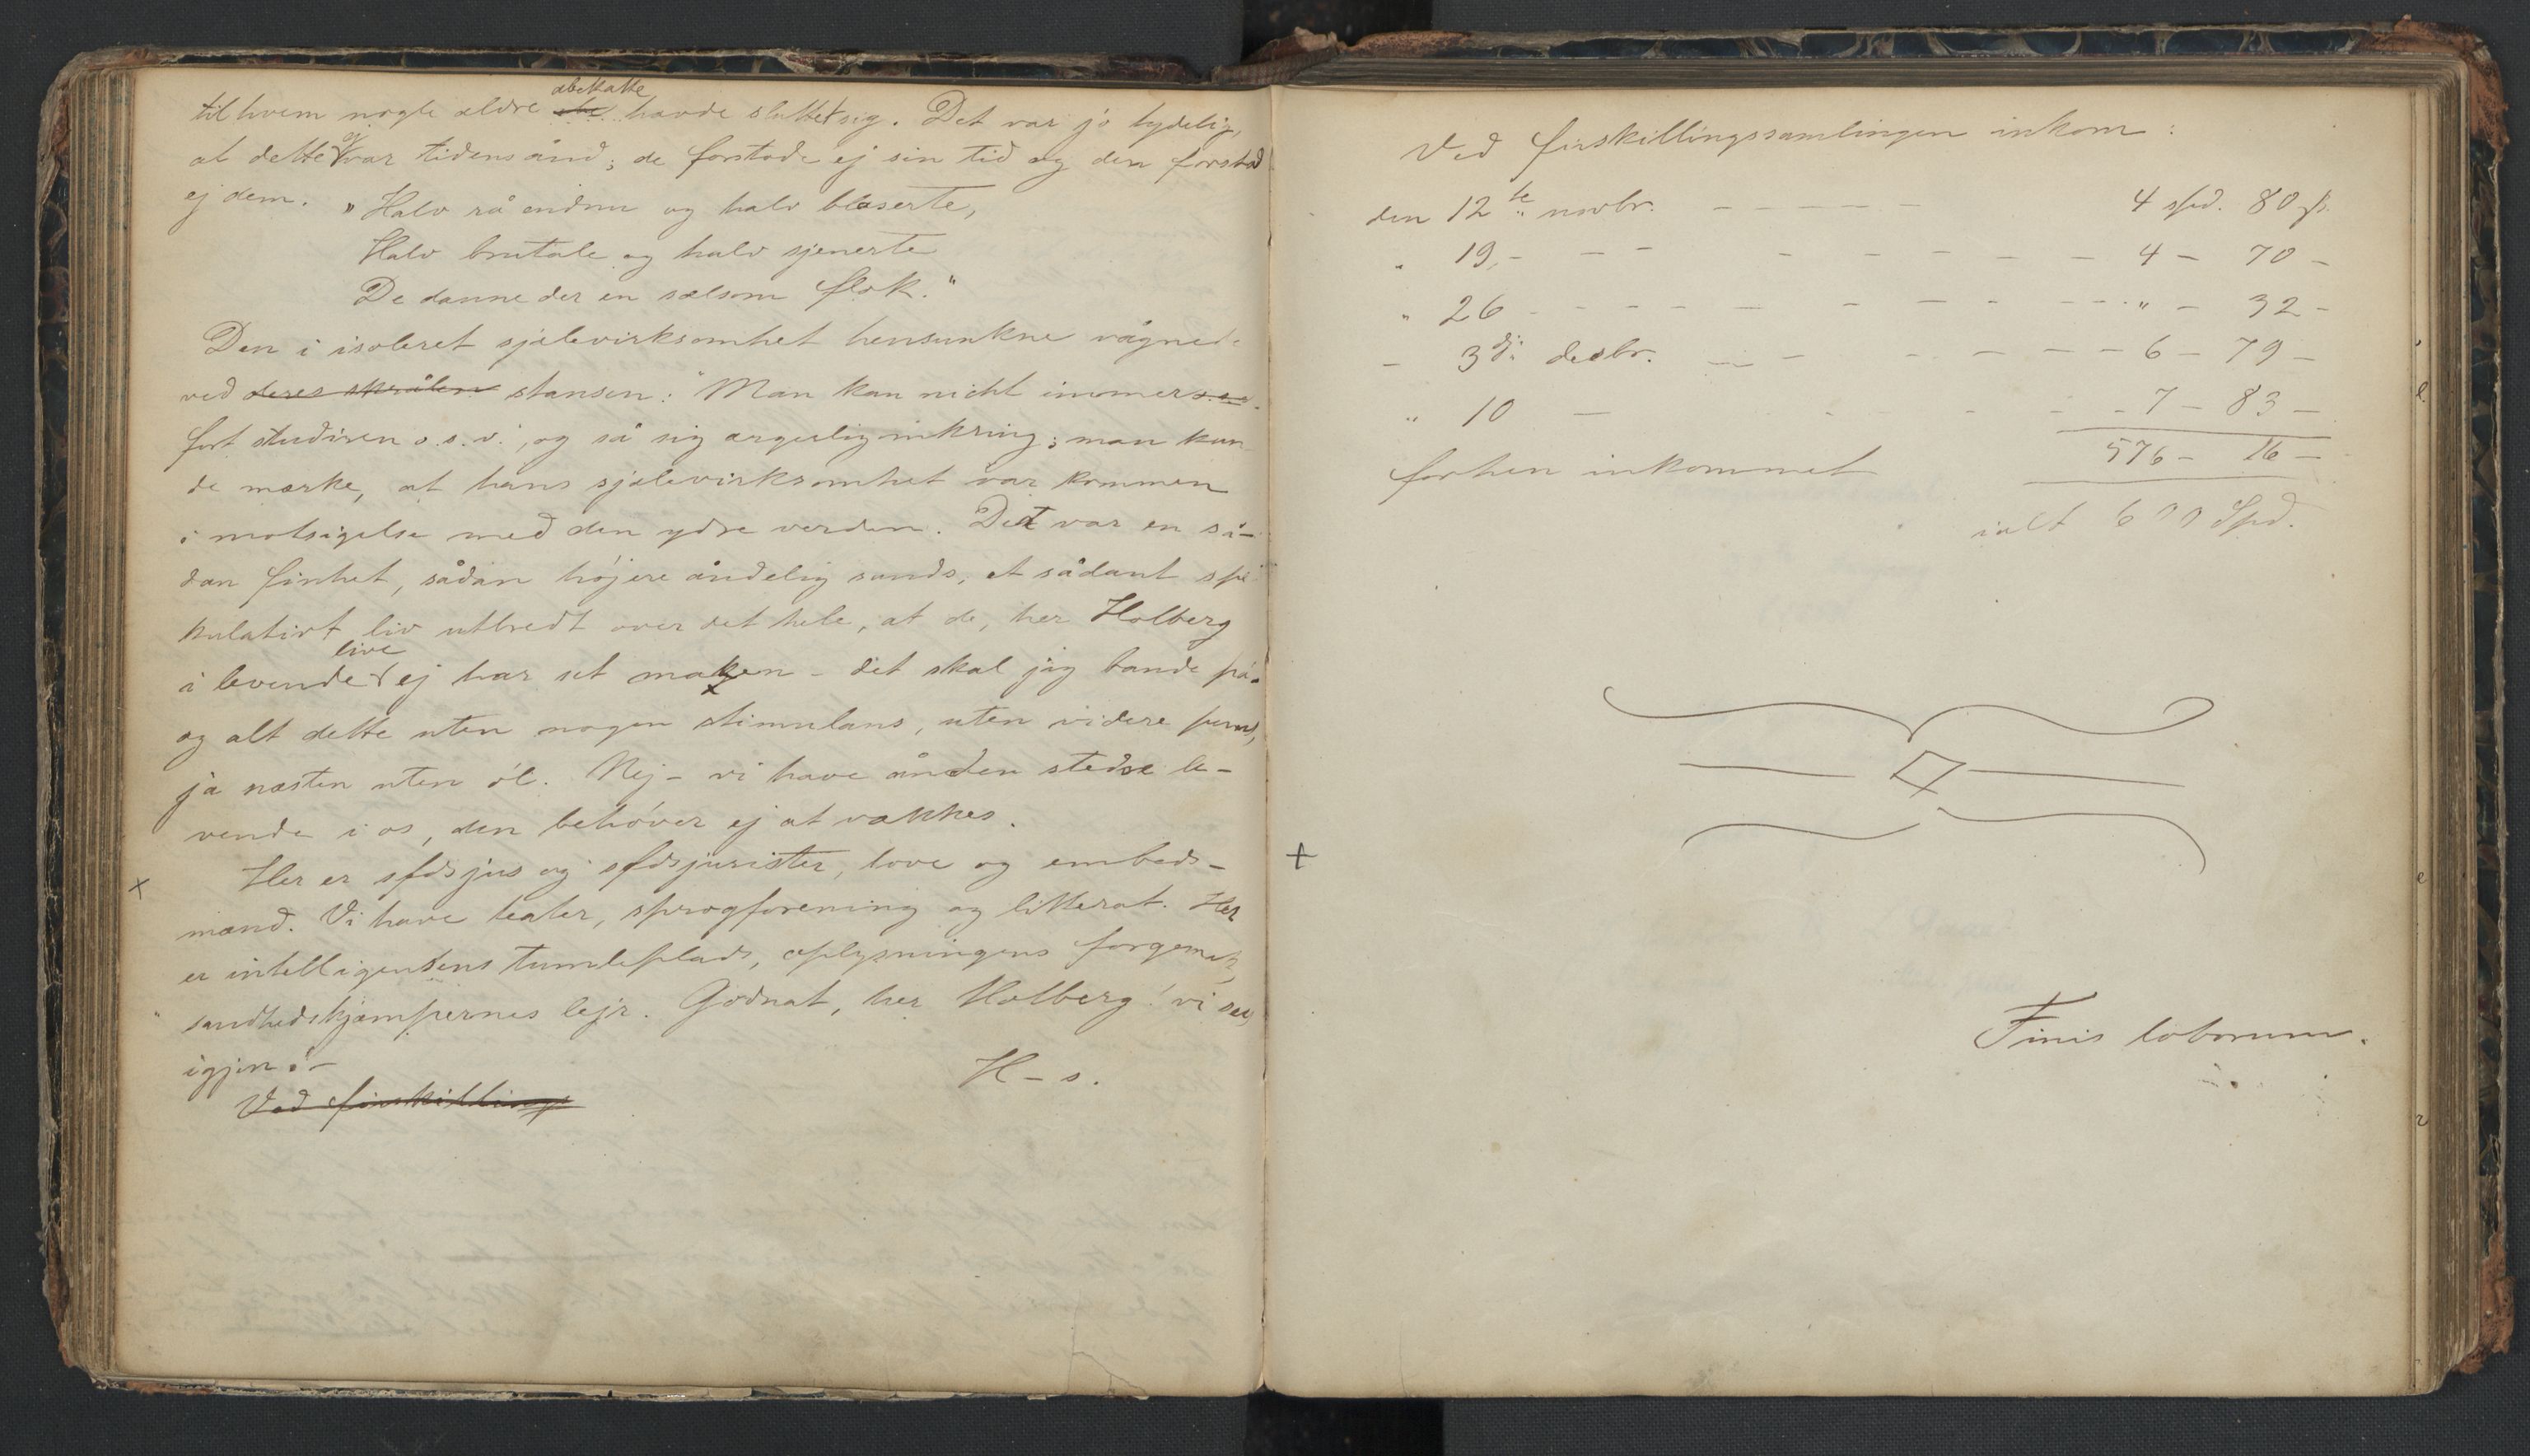 til hvem nogle ældre abekatte havde sluttet sig. Det var jo tydelig,
at dette ej var tidens ånd; de forstode ej sin tid og den forstod
ej dem. "Halv rå endnu og halv blaserte,
Halv brutale og halv sjenerte
De danne der en sælsom flok."
Den i isoleret sjælevirksomhet hensunkne vågnede
ved deres skrålen stansen: "Man kan nicht immer
fort studiren o.s.v.", og så sig ærgerlig inkring; man kun-
de mærke, at hans sjælevirksomhet var kommen
i motsigelse med den ydre verden. Det var en så-
dan finhet, sådan højere åndelig sands, et sådant spe-
kulativt liv utbredt over det hele, at de, her Holberg
i levende live ej har set maken – det skal jeg bande på.
og alt dette uten nogen stimulans, uten videre
ja næsten uten öl. Nej – vi have ånden stedse le-
vende i os, den behöver ej at vækkes.
+ Her er sfdsjus og sfdsjurister, love og embeds-
mænd. Vi have teater, sprogforening og litterat. Her
er intelligensens tumleplads, oplysningens forgemak,
sandhedskjæmpernes lejr. Godnat, her Holberg! vi sees
igjen! –
H – s.
Ved firskillings
Ved firskillingssamlingen inkom:
den 12te novbr. – – – – – 4 spd. 80 ß.
" 19. – – – – – – – – – 4 – 70 –
" 26 – – – – – – – – – " – 32 –
– 3dje decbr. – – – – – – 6 – 79 –
" 10 – – – – – 7 – 83 –
forhen inkommet 576 – 16 –
ialt 600 Spd.
+
Finis laborum.